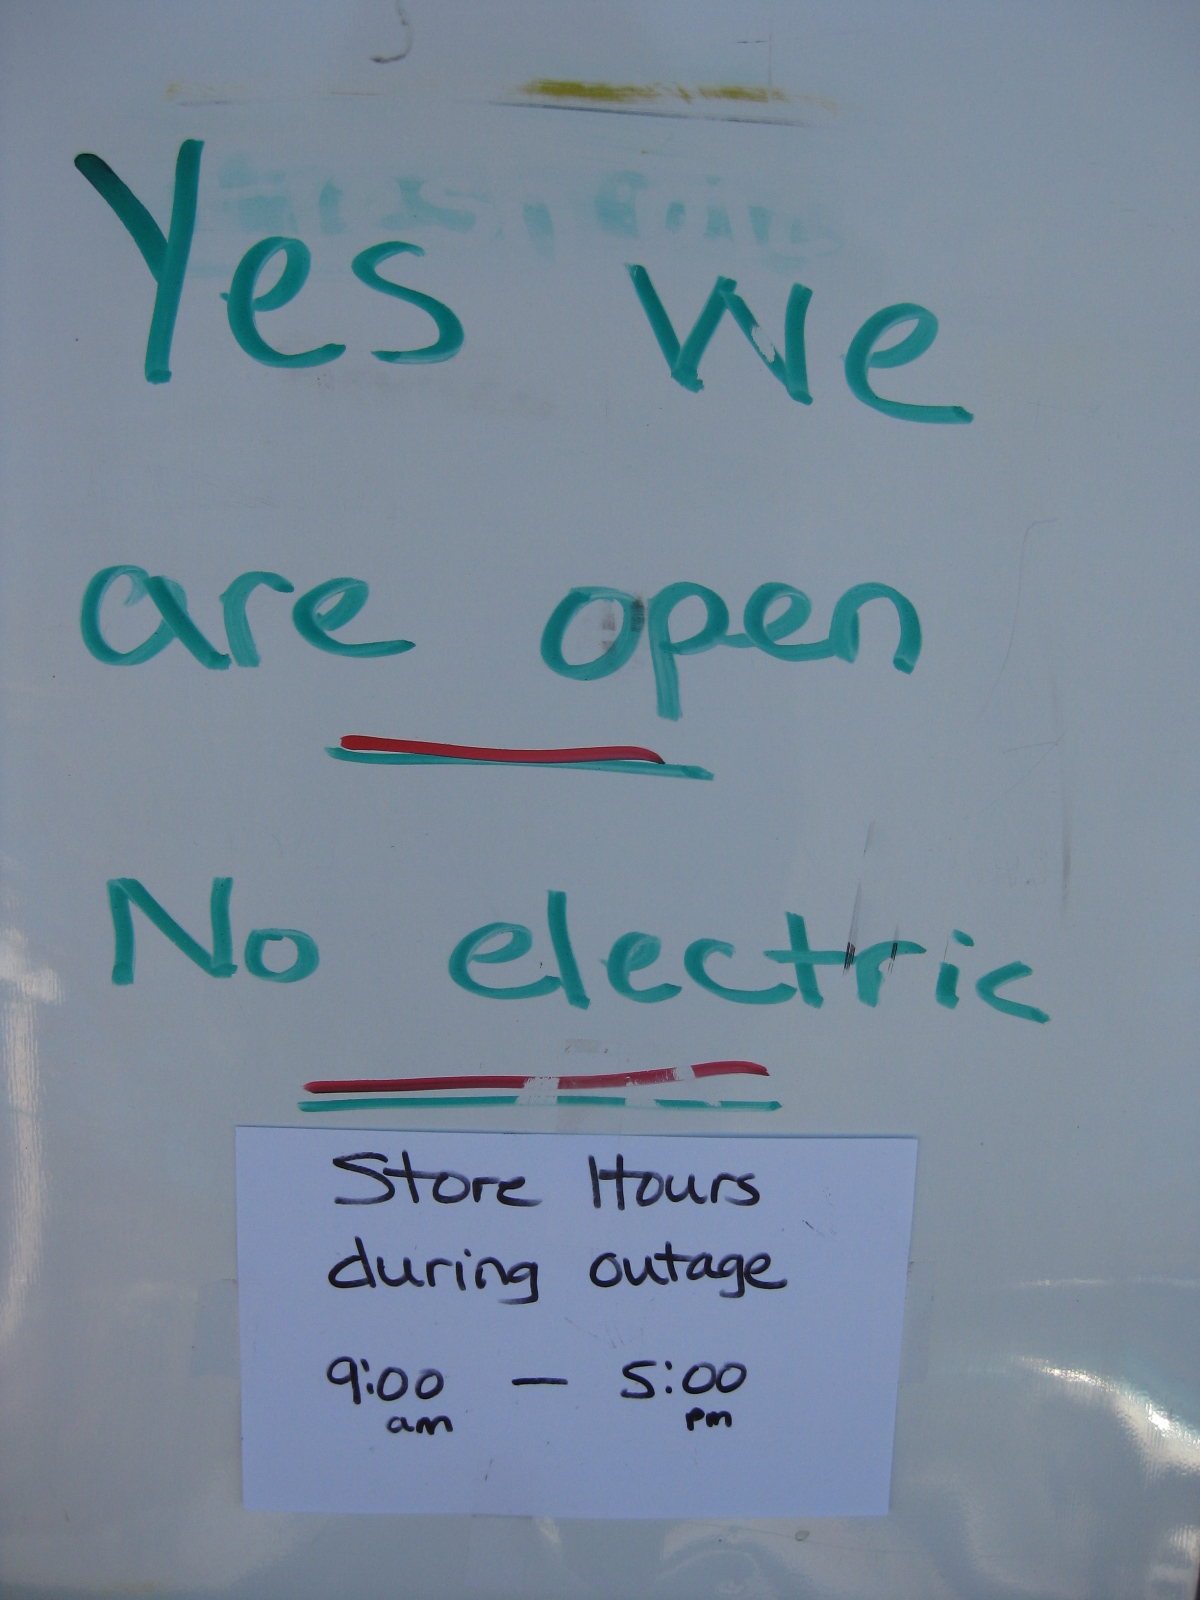 Yes We
are open
No electric
Store Hours
during outage
9:00 — 5:00
am pm